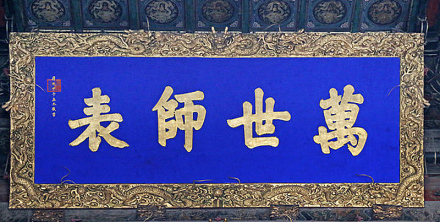 萬世師表